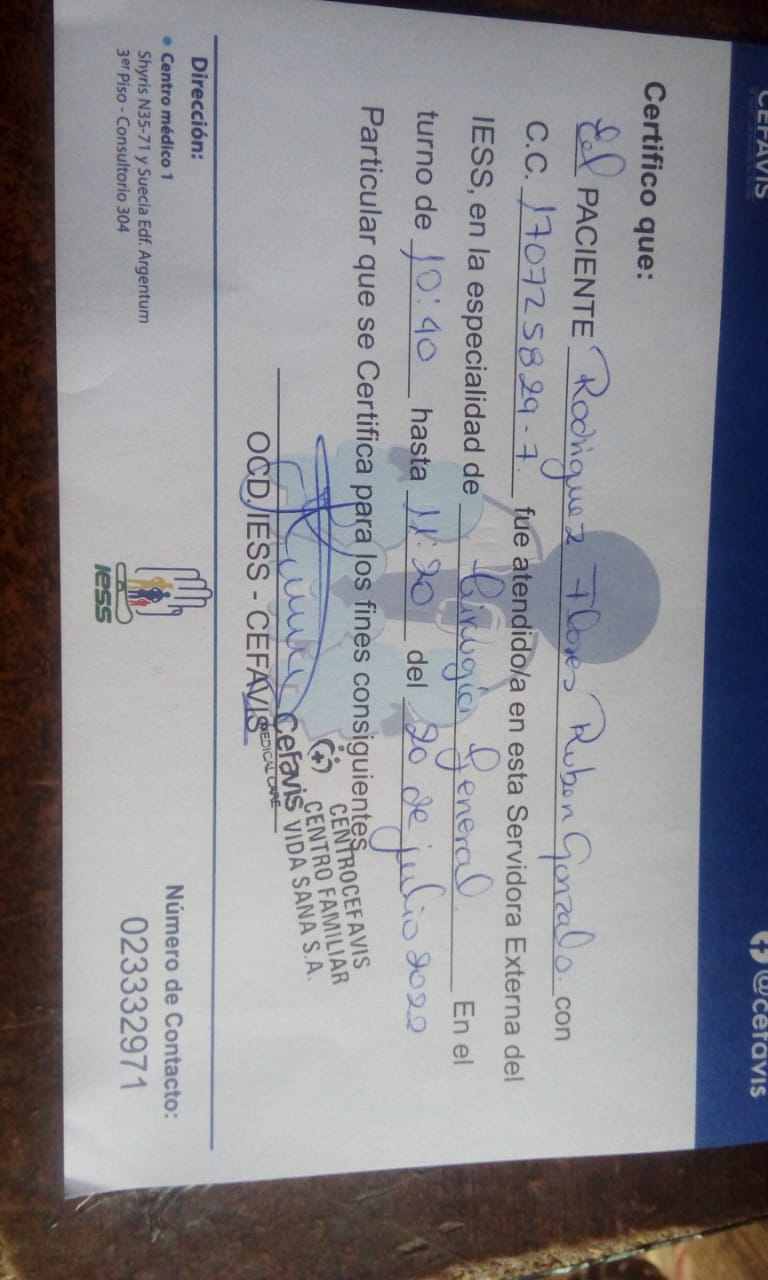 CEFAVIS
@cefavis
Certifico que:
El PACIENTE Rodriguez Flores Ruben Gonzalo. con
C.C. 170725829-7. fue atendido/a en esta Servidora Externa del
IESS, en la especialidad de Cirugía General. En el
turno de 10:40 hasta 11:20 del 20 de julio 2022
Particular que se Certifica para los fines consiguientes
CENTROCEFAVIS
CENTRO FAMILIAR
Cefavis VIDA SANA S.A.
MEDICAL CARE
OCD. IESS - CEFAVIS
Dirección:
• Centro médico 1
Shyris N35-71 y Suecia Edf. Argentum
3er Piso - Consultorio 304
iess
Número de Contacto:
023332971